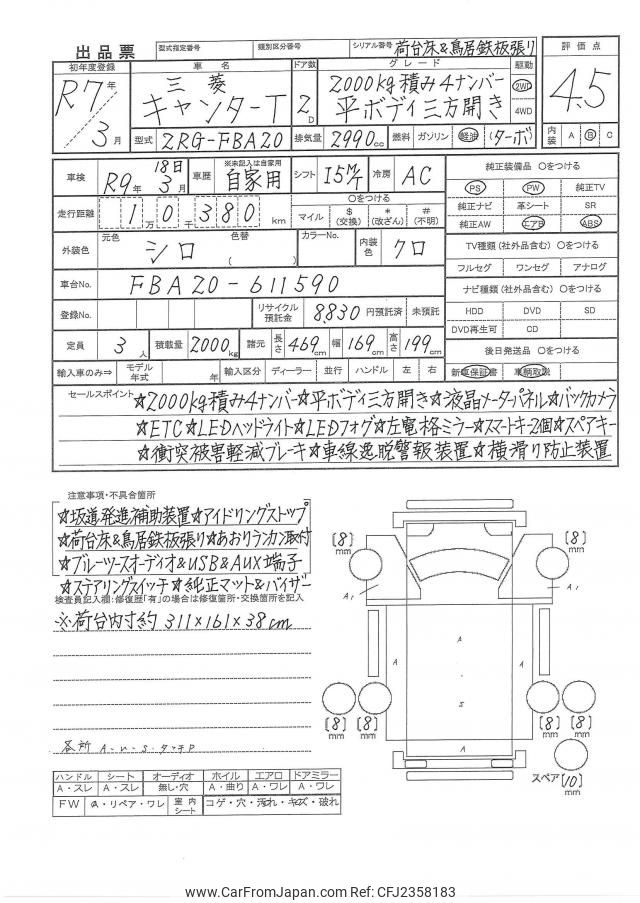 出品票 型式指定番号 類別区分番号 シリアル番号 荷台床&鳥居鉄板張り
初年度登録 車名 ドア数 グレード 駆動 評価点
R7年 三菱 2000kg積み4ナンバー 2WD
3月 キャンターT 2D 平ボディ三方開き 4WD 4.5
型式 2RG-FBA20 排気量 2990cc 燃料 ガソリン 軽油 (ターボ) 内装 A B C
車検 R9年 3月 18日 車歴 ※未記入は自家用 自家用 シフト I5M/T 冷房 AC
純正装備品 ○をつける
PS PW 純正TV
純正ナビ 革シート SR
純正AW エアB ABS
走行距離 1万0千380km
○をつける
マイル $(交換) *(改ざん) #(不明)
外装色 元色 シロ 色替( ) カラーNo. 内装色 クロ
TV種類(社外品含む) ○をつける
フルセグ ワンセグ アナログ
車台No. FBA20-611590
ナビ種類(社外品含む) ○をつける
HDD DVD SD
DVD再生可 CD
登録No. リサイクル預託金 8830 円預託済 未預託
定員 3人 積載量 2000kg 諸元 長さ 469cm 幅 169cm 高さ 199cm
後日発送品 ○をつける
輸入車のみ⇒ モデル年式 年 輸入区分 ディーラー 並行 ハンドル 左 右
新車保証書 車輌取説
セールスポイント ☆2000kg積み4ナンバー☆平ボディ三方開き☆液晶メーターパネル☆バックカメラ
☆ETC☆LEDヘッドライト☆LEDフォグ☆左電格ミラー☆スマートキー2個☆スペアキー
☆衝突被害軽減ブレーキ☆車線逸脱警報装置☆横滑り防止装置
注意事項・不具合箇所
☆坂道発進補助装置☆アイドリングストップ
☆荷台床&鳥居鉄板張り☆あおりランカン取付
☆ブルーツースオーディオ&USB&AUX端子
☆ステアリングスイッチ☆純正マット&バイザー
検査員記入欄:修復歴「有」の場合は修復箇所・交換箇所を記入
※荷台内寸約 311×161×38cm
各所 A-U-S-タッチP
[8]mm [8]mm
A1 A1
A A A
S
[8]mm [8]mm [8]mm [8]mm
A
スペア [10]mm
ハンドル シート オーディオ ホイル エアロ ドアミラー
A・スレ A・スレ 無し・穴 A・曲り A・ワレ A・ワレ
FW A・リペア・ワレ 室内シート コゲ・穴・汚れ・キズ・破れ
www.CarFromJapan.com Ref: CFJ2358183